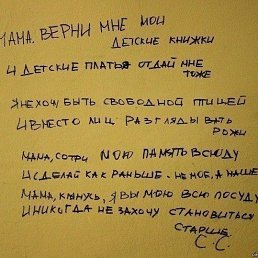 МАМА, ВЕРНИ МНЕ МОИ
ДЕТСКИЕ КНИЖКИ
И ДЕТСКИЕ ПЛАТЬЯ ОТДАЙ МНЕ
ТОЖЕ
Я НЕ ХОЧУ БЫТЬ СВОБОДНОЙ ПТИЦЕЙ
И ВМЕСТО ЛИЦ РАЗГЛЯДЫВАТЬ
РОЖИ
МАМА, СОТРИ МОЮ ПАМЯТЬ ВСЮДУ
И СДЕЛАЙ КАК РАНЬШЕ - НЕ МОЕ, А НАШЕ
МАМА, КЛЯНУСЬ, Я ВЫМОЮ ВСЮ ПОСУДУ
И НИКОГДА НЕ ЗАХОЧУ СТАНОВИТЬСЯ
СТАРШЕ.
С.С.